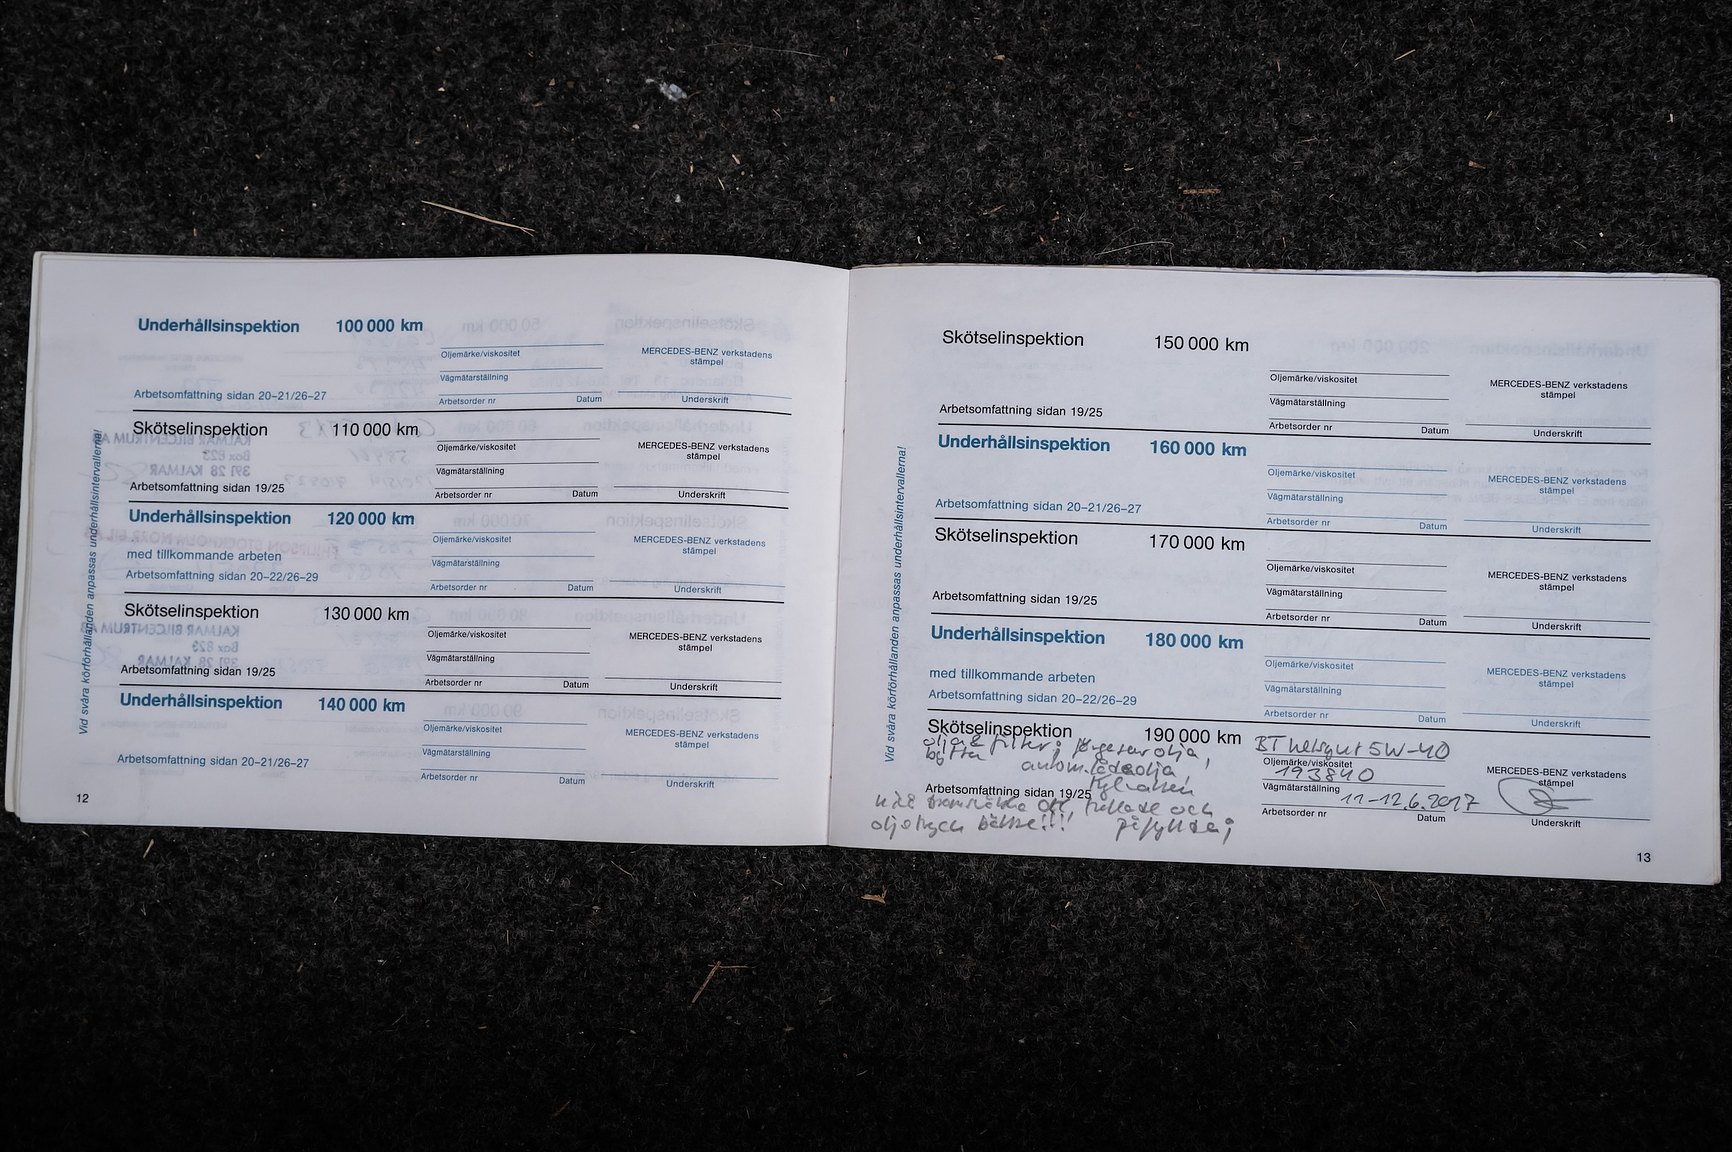 Vid svåra körförhållanden anpassas underhållsintervallerna!
Underhållsinspektion 100 000 km
Oljemärke/viskositet
MERCEDES-BENZ verkstadens
stämpel
Vägmätarställning
Arbetsomfattning sidan 20–21/26–27
Arbetsorder nr Datum Underskrift
Skötselinspektion 110 000 km
Oljemärke/viskositet
MERCEDES-BENZ verkstadens
stämpel
Vägmätarställning
Arbetsomfattning sidan 19/25
Arbetsorder nr Datum Underskrift
Underhållsinspektion 120 000 km
Oljemärke/viskositet
MERCEDES-BENZ verkstadens
stämpel
med tillkommande arbeten
Vägmätarställning
Arbetsomfattning sidan 20–22/26–29
Arbetsorder nr Datum Underskrift
Skötselinspektion 130 000 km
Oljemärke/viskositet
MERCEDES-BENZ verkstadens
stämpel
Vägmätarställning
Arbetsomfattning sidan 19/25
Arbetsorder nr Datum Underskrift
Underhållsinspektion 140 000 km
Oljemärke/viskositet
MERCEDES-BENZ verkstadens
stämpel
Vägmätarställning
Arbetsomfattning sidan 20–21/26–27
Arbetsorder nr Datum Underskrift
12
Vid svåra körförhållanden anpassas underhållsintervallerna!
Skötselinspektion 150 000 km
Oljemärke/viskositet
MERCEDES-BENZ verkstadens
stämpel
Vägmätarställning
Arbetsomfattning sidan 19/25
Arbetsorder nr Datum Underskrift
Underhållsinspektion 160 000 km
Oljemärke/viskositet
MERCEDES-BENZ verkstadens
stämpel
Vägmätarställning
Arbetsomfattning sidan 20–21/26–27
Arbetsorder nr Datum Underskrift
Skötselinspektion 170 000 km
Oljemärke/viskositet
MERCEDES-BENZ verkstadens
stämpel
Vägmätarställning
Arbetsomfattning sidan 19/25
Arbetsorder nr Datum Underskrift
Underhållsinspektion 180 000 km
Oljemärke/viskositet
MERCEDES-BENZ verkstadens
stämpel
med tillkommande arbeten
Vägmätarställning
Arbetsomfattning sidan 20–22/26–29
Arbetsorder nr Datum Underskrift
Skötselinspektion 190 000 km
5W-40
olja & filter;
Oljemärke/viskositet
MERCEDES-BENZ verkstadens
stämpel
193840
Vägmätarställning
Arbetsomfattning sidan 19/25
11-12.6.2017
och
Arbetsorder nr Datum Underskrift
13